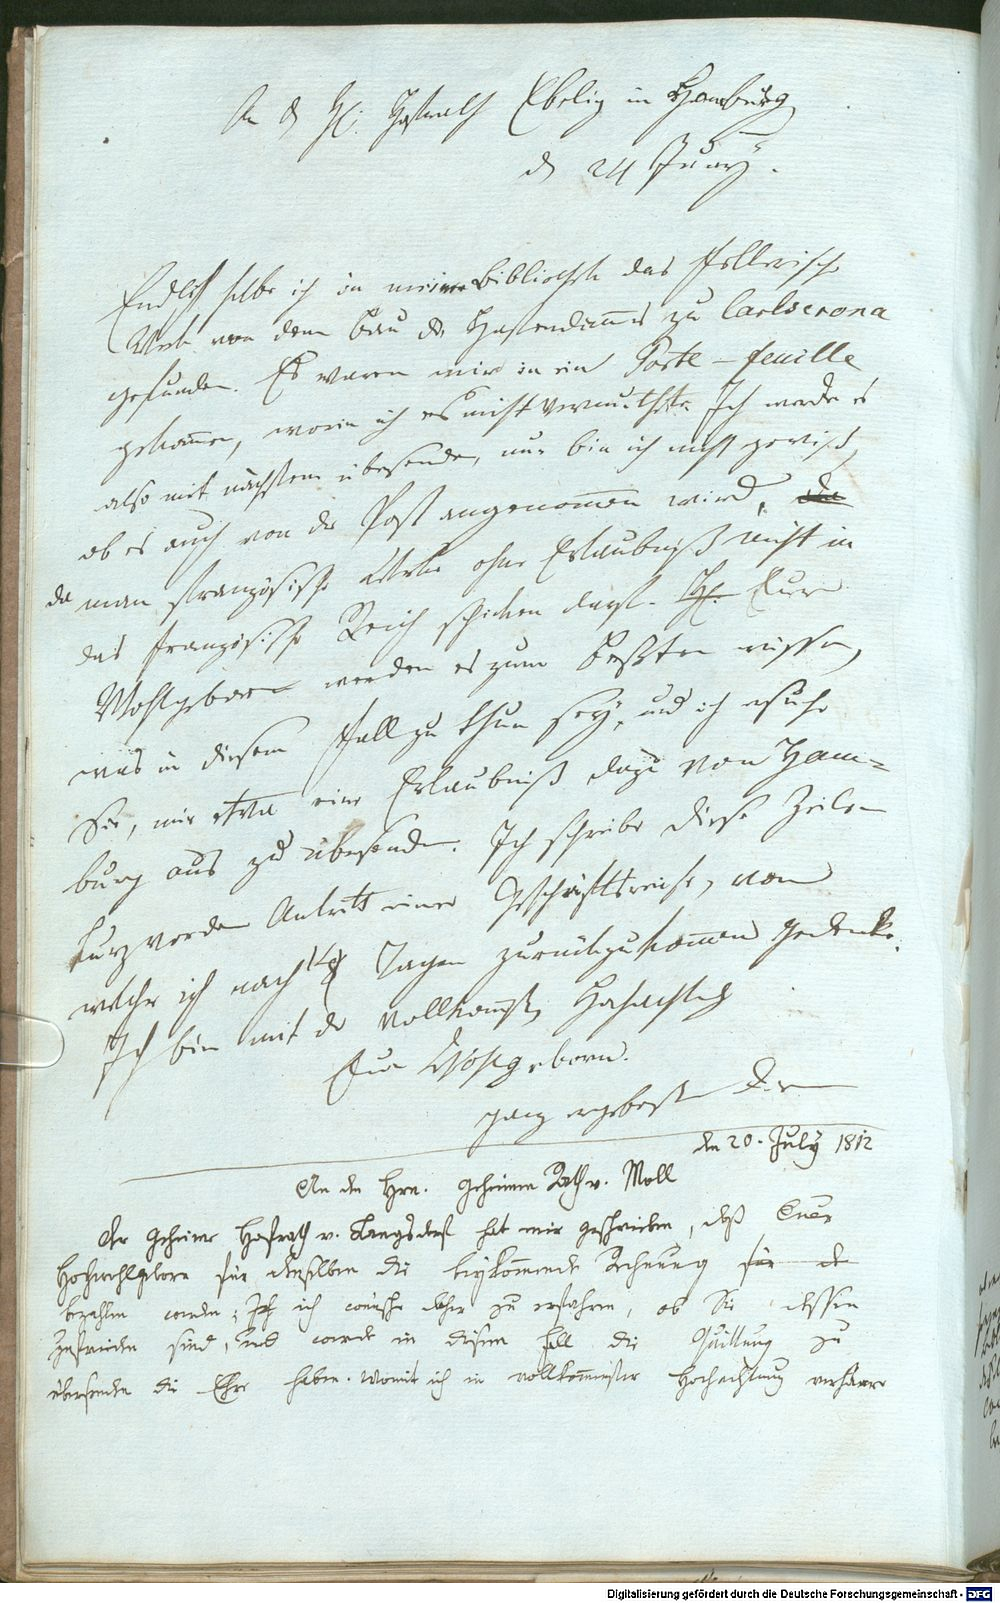 An d H. Hofrath Ebeling in Hamburg
d 24 Juny.
Endlich habe ich in meiner Bibliothek das
Werk von dem Bau des Hafendammes zu Carlscrona
gefunden. Es waren mir in ein Porte-feuille
gekommen, worin ich es nicht vermuthete. Ich werde es
also mit nächstem übersenden, nur bin ich nicht gewiß,
ob es auch von der Post angenommen wird, da
da man französische Werke ohne Erlaubniß nicht in
das französische Reich schicken darf. H. Euer
Wohlgeborn werden es zum beßten wissen,
was in diesem Fall zu thun sey, und ich ersuche
Sie, mir etwa eine Erlaubniß dazu von Ham=
burg aus zu übersenden. Ich schreibe diese Zeilen
kurz vor dem Antritt einer Geschäftsreise, von
welcher ich nach 14 Tagen zurückzukommen gedenke.
Ich bin mit der vollkommst Hochacht
Eur Wohlgeborn.
ganz ergebenster Dr
den 20. July 1812
An den Hrn. geheimen Rath v. Moll
Der geheime Hofrath v. Langsdorf hat mir geschrieben, daß Euer
Hochwohlgeborn für denselben die beykommende Rechnung für de
bezahlen werden; Ich ich wünsche daher zu erfahren, ob Sie dessen
zufrieden sind, und werde in diesem Fall die Quittung zu
übersenden die Ehre haben. Womit ich in vollkommenster Hochachtung verharre
Digitalisierung gefördert durch die Deutsche Forschungsgemeinschaft - DFG